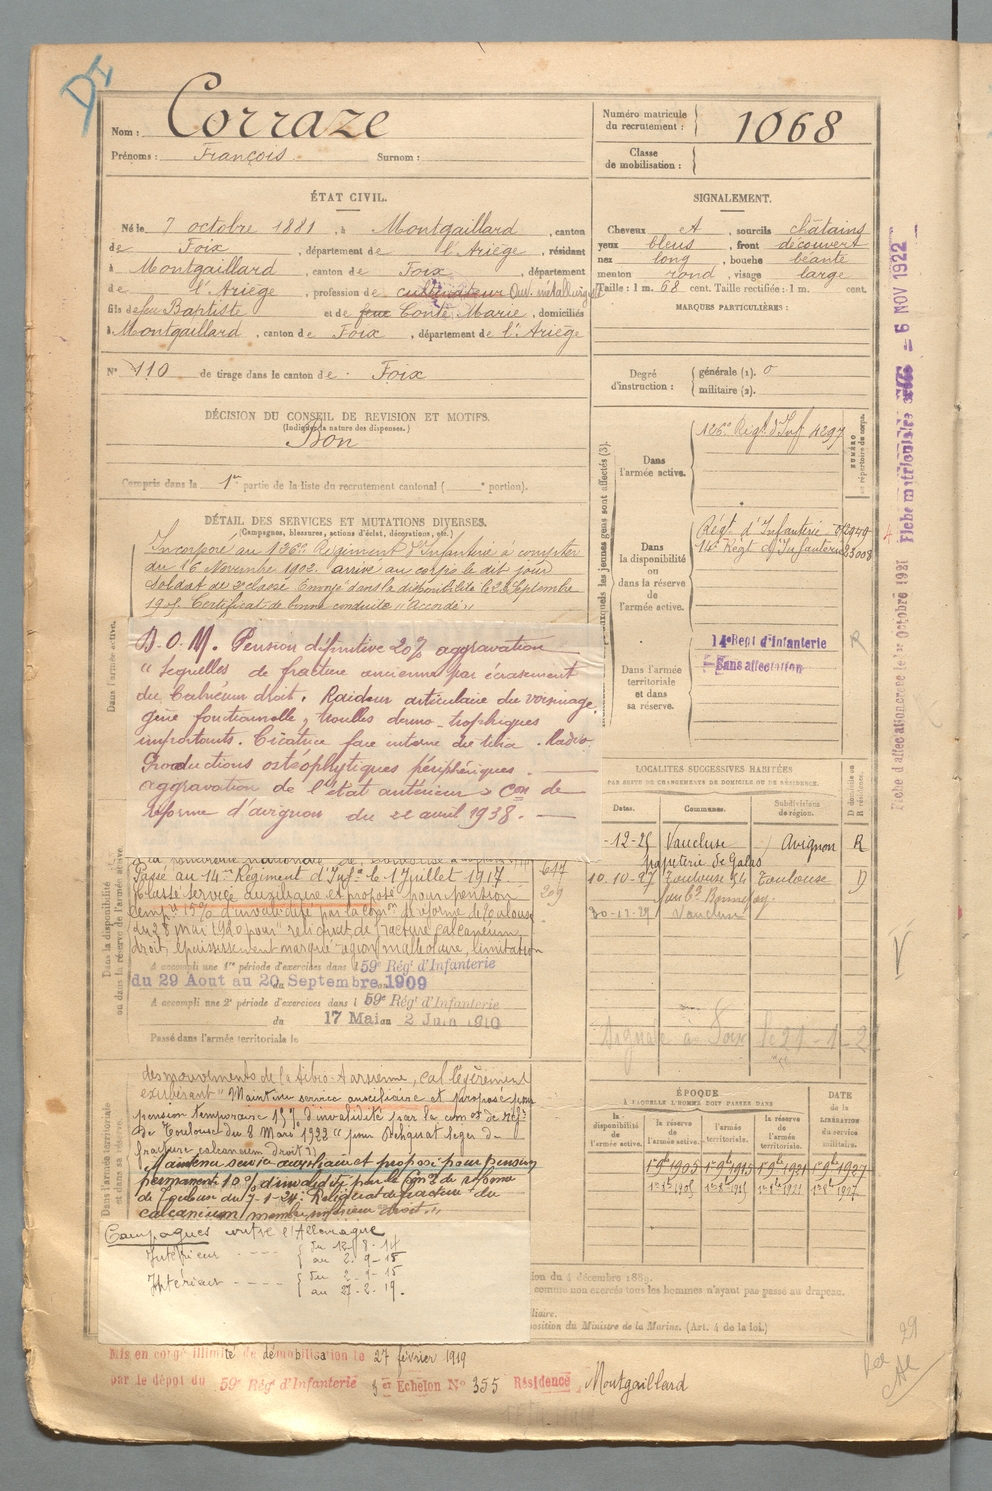 DI
Nom : Corraze
Prénoms : François Surnom :
Numéro matricule du recrutement : 1068
Classe de mobilisation :
ÉTAT CIVIL.
Né le 7 octobre 1881, à Montgaillard, canton
de Foix, département de l'Ariège, résidant
à Montgaillard, canton de Foix, département
de l'Ariège, profession de cultivateur Ouv. métallurgiste
fils de feu Baptiste et de feue Conte Marie, domiciliés
à Montgaillard, canton de Foix, département de l'Ariège
N° 110 de tirage dans le canton de Foix
SIGNALEMENT.
Cheveux et, sourcils châtains
yeux bleus, front découvert
nez long, bouche béante
menton rond, visage large
Taille : 1 m. 68 cent. Taille rectifiée : 1 m. cent.
MARQUES PARTICULIÈRES :
Degré d'instruction : générale (1). 0
militaire (2).
DÉCISION DU CONSEIL DE REVISION ET MOTIFS.
(Indiquer la nature des dispenses.)
Bon
Compris dans la 1re partie de la liste du recrutement cantonal ( e portion).
DÉTAIL DES SERVICES ET MUTATIONS DIVERSES.
(Campagnes, blessures, actions d'éclat, décorations, etc.)
Incorporé au 126e Régiment d'Infanterie à compter
du 16 Novembre 1902. arrivé au corps le dit jour
soldat de 2e classe Envoyé dans la disponibilité le 23 Septembre
1905. Certificat de bonne conduite "Accordé"
D.O.M. Pension définitive 20% aggravation
"Sequelles de fracture ancienne par écrasement
du Calnéum droit. Raideur articulaire du voisinage,
gêne fonctionnelle, troubles dermo-trophiques
importants. Cicatrice face interne du tibia. Radio
Productions ostéophytiques périphériques.
aggravation de l'état antérieur" Con de
réforme d'avignon du 22 avril 1938.
Passé au 14me Régiment d'Infie le 1 Juillet 1917
Classé service auxiliaire et proposé pour pension
temp. 15% d'invalidité par la Comon Réforme de Toulouse
du 28 mai 1920 pour reliquat de fracture calcaneum
droit, épaississement marqué région malléolaire, limitation
647
209
A accompli une 1re période d'exercices dans l 59e Rég' d'Infanterie
du 29 Aout au 20 Septembre 1909
A accompli une 2e période d'exercices dans l 59e Rég' d'Infanterie
du 17 Mai au 2 Juin 1910
Passé dans l'armée territoriale le
des mouvements de la tibio-tarsienne, cal légèrement
exubérant" Maintenu service auxiliaire et proposé pour
pension temporaire 15% d'invalidité par la comon de réfe
de Toulouse du 8 Mars 1922 "pour Reliquat léger de
fracture calcaneum droit"
Maintenu service auxiliaire et proposé pour pension
permanente 10% d'invalidité par la Com. de réforme
de Toulouse du 7-1-24. Reliquat de fracture du
calcaneum membre inférieur droit.
Campagnes contre l'Allemagne
Intérieur du 12-8-14
au 2-9-15
Intérieur du 2-9-15
au 27-2-19.
Mis en congé illimité de démobilisation le 27 février 1919
par le dépot du 59e Rég' d'Infanterie 3er Echelon N° 355 Résidence Montgaillard
Dans l'armée active.
Dans la disponibilité ou dans la réserve de l'armée active.
Dans l'armée territoriale et dans sa réserve.
Dans l'armée active. 126e Régt d'Inf 4297
NUMÉRO
au répertoire du corps.
Dans la disponibilité ou dans la réserve de l'armée active.
Régt. d'Infanterie
14e Régt d'Infanterie 23008
Dans l'armée territoriale et dans sa réserve.
14e Regt d'Infanterie
Sans affectation
R
LOCALITÉS SUCCESSIVES HABITÉES
PAR SUITE DE CHANGEMENTS DE DOMICILE OU DE RÉSIDENCE.
Dates. Communes. Subdivisions de région. D domicile ou R résidence.
-12-25 Vaucluse Avignon R
papeterie de Galas
10.10.27 Toulouse 54 Toulouse D
30-11-29 Vaucluse
Signalé à Foix le 21-1-2
ÉPOQUE
À LAQUELLE L'HOMME DOIT PASSER DANS
la disponibilité de l'armée active. la réserve de l'armée active. l'armée territoriale. la réserve de l'armée territoriale.
DATE de la LIBÉRATION du service militaire.
1er 9bre 1905 1er 9bre 1915 1er 9bre 1921 1er 9bre 1927
1er 8bre 1905 1er 8bre 1915 1er 8bre 1921 1er 8bre 1927
ion du 4 décembre 1889.
comme non exercés tous les hommes n'ayant pas passé au drapeau.
liaire.
position du Ministre de la Marine. (Art. 4 de la loi.)
Fiche d'affectation créée le 1er Octobre 1921 Fiche matriculaire créée le 6 NOV 1922
V
29